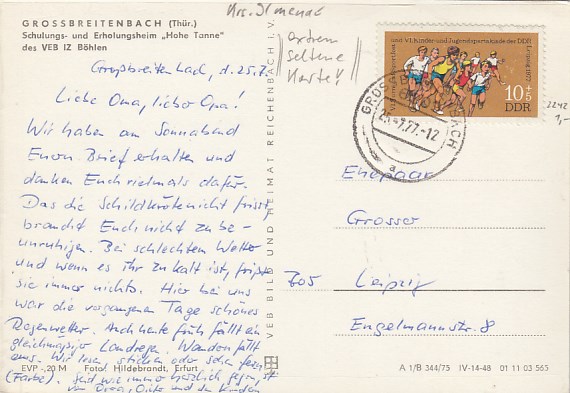 GROSSBREITENBACH (Thür.)
Schulungs- und Erholungsheim „Hohe Tanne"
des VEB IZ Böhlen
Krs. Ilmenau
extrem
seltene
Karte!
Großbreitenbach, d. 25.7.
Liebe Oma, lieber Opa!
Wir haben am Sonnabend
Euren Brief erhalten und
danken Euch vielmals dafür.
Das die Schildkröte nicht frißt,
braucht Euch nicht zu be-
unruhigen. Bei schlechtem Wetter
und wenn es ihr zu kalt ist, frißt
sie immer nichts. Hier bei uns
war die vergangenen Tage schönes
Regenwetter. Auch heute früh fällt ein
gleichmäßiger Landregen. Wandern fällt
aus. Wir lesen, sticken oder sehen fern
(Farbe). Seid wie immer herzlich gegrüßt
von und den Kindern
VEB BILD UND HEIMAT REICHENBACH I. V.
und VI. Kinder- und Jugendspartakiade der DDR
Leipzig 1977
10+5
DDR
GROSSBREITENBACH
25.-7.77.-12
a
2242
1,-
Ehepaar
Grosser
705 Leipzig
Engelmannstr. 8
EVP -,20 M Foto: Hildebrandt, Erfurt
A 1/B 344/75 IV-14-48 01 11 03 565